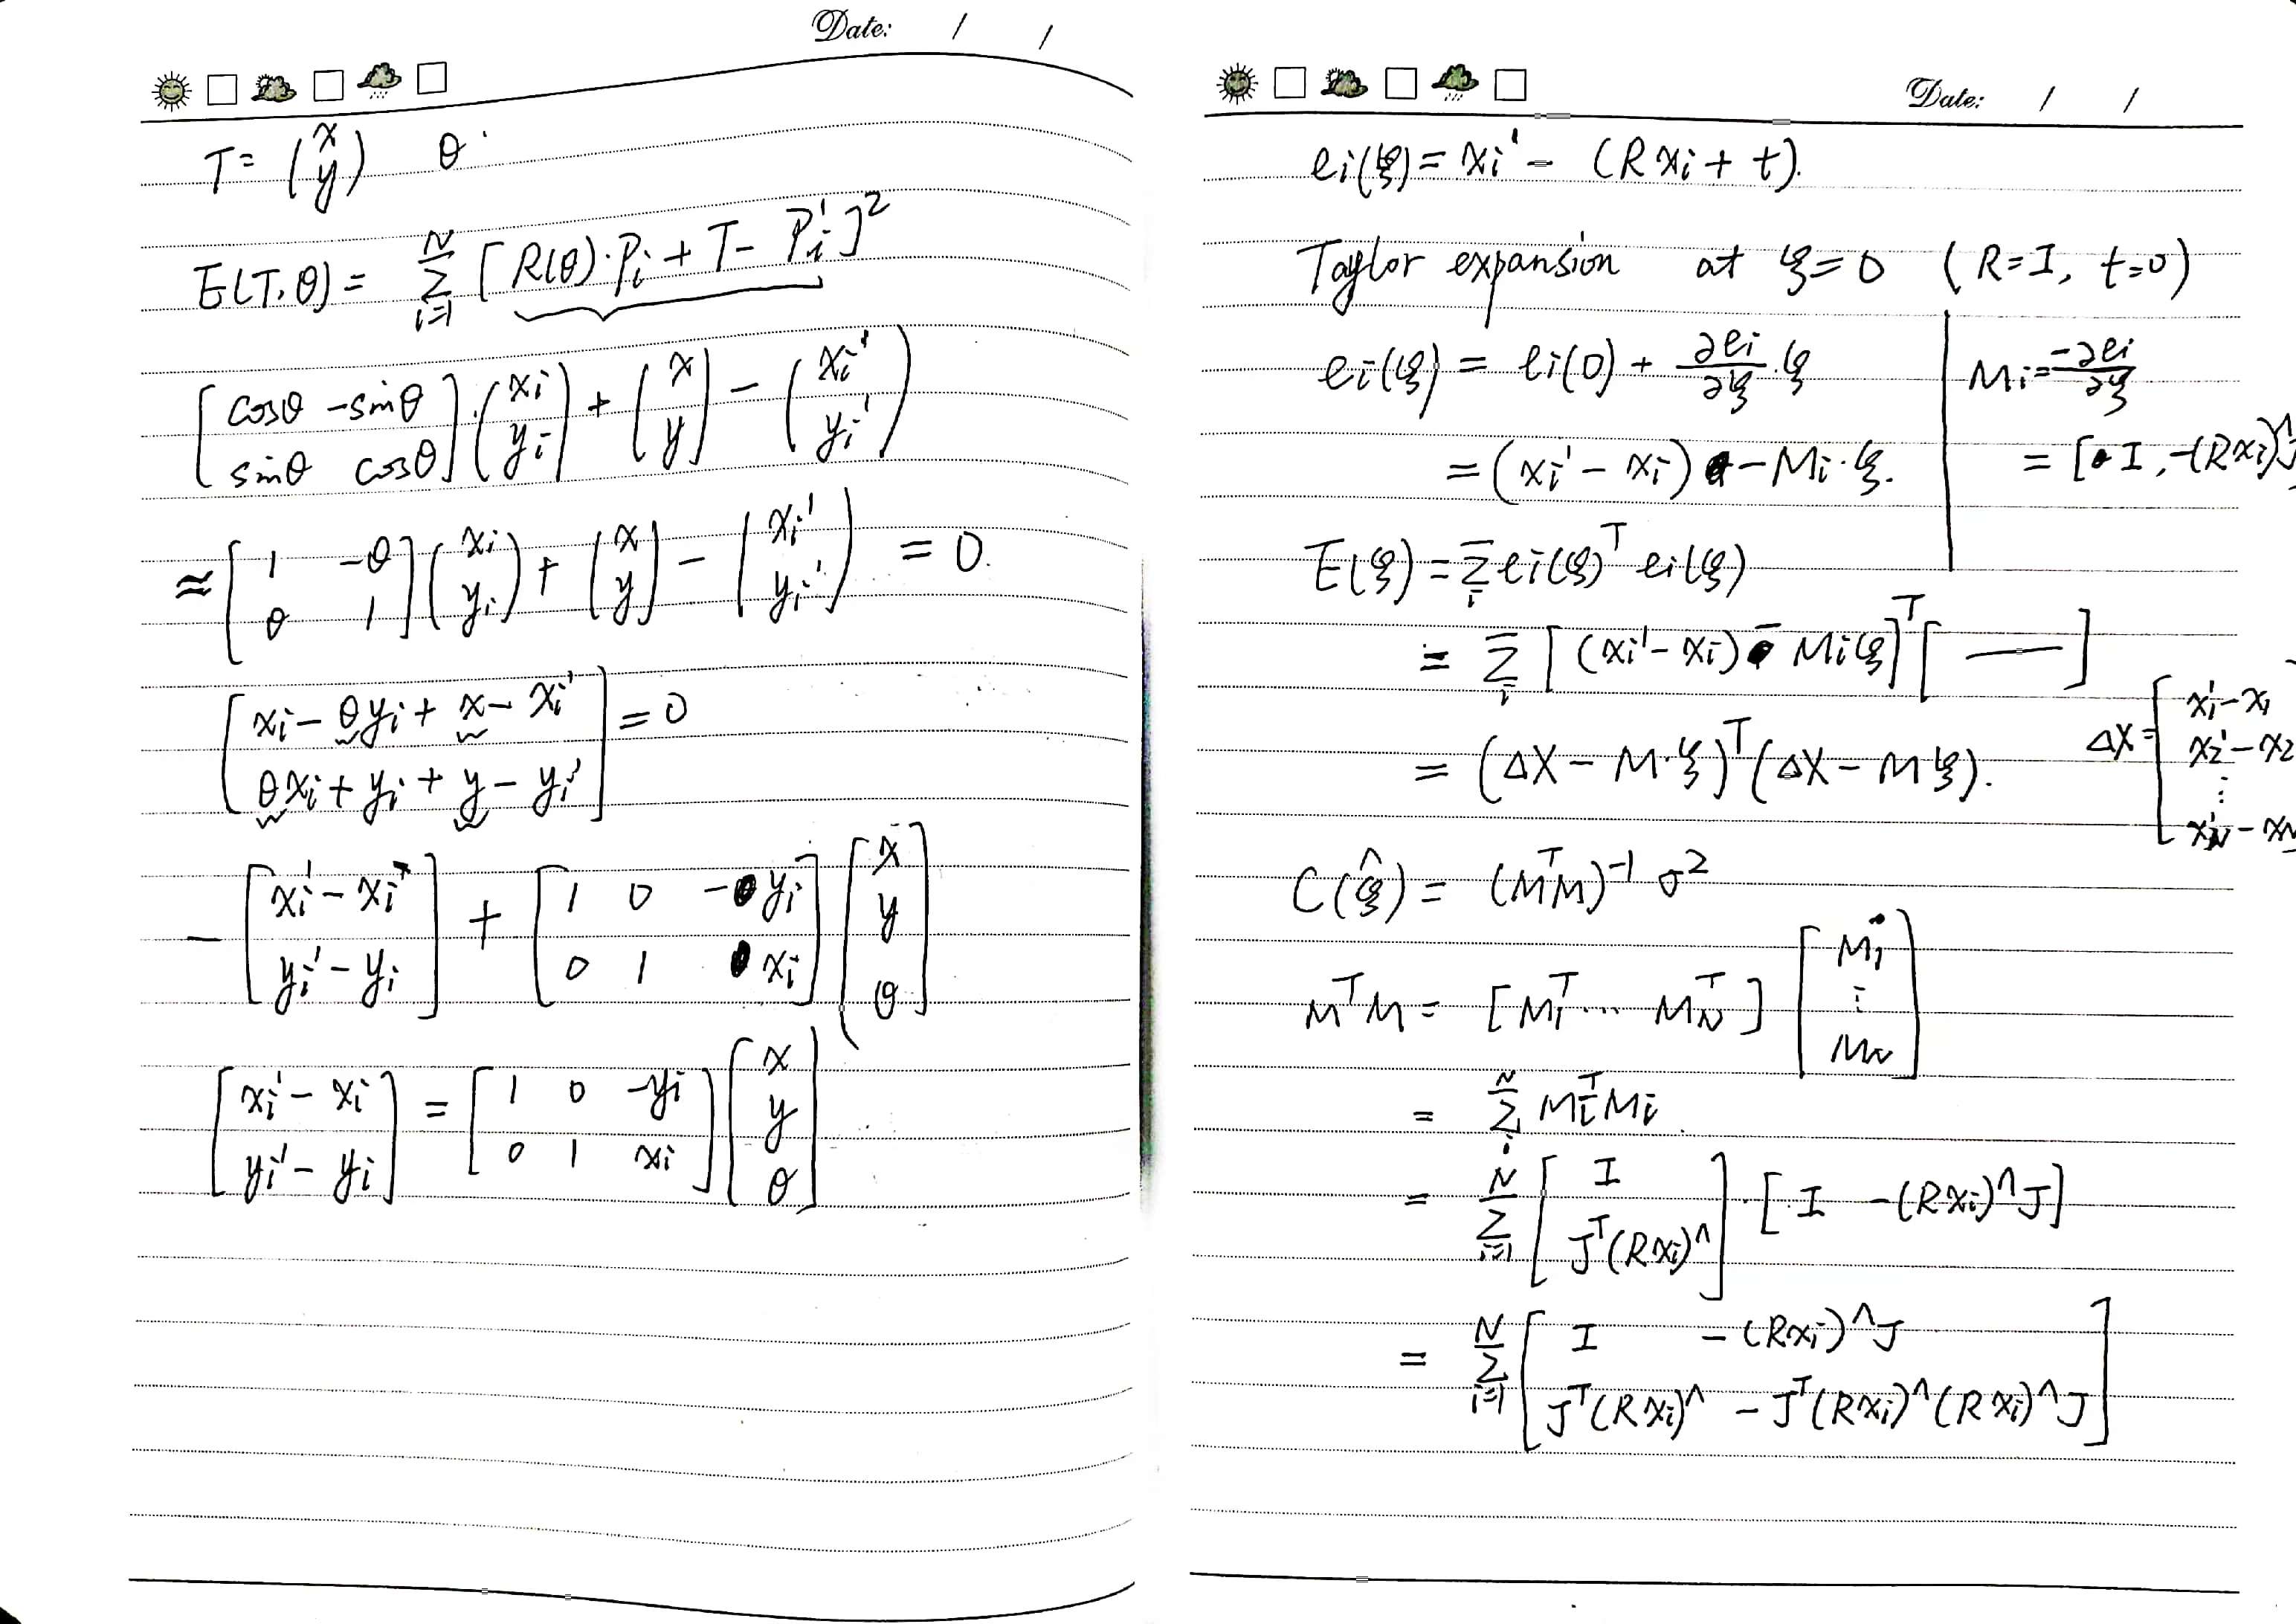 Date: / /
T = (x y) θ
E(T, θ) = Σ_{i=1}^{N} [R(θ)·Pi + T − Pi']²
[cosθ −sinθ; sinθ cosθ]·(xi; yi) + (x; y) − (xi'; yi')
≈ [1 −θ; θ 1](xi; yi) + (x; y) − (xi'; yi') = 0.
[xi − θyi + x − xi'; θxi + yi + y − yi'] = 0
− [xi' − xi; yi' − yi] + [1 0 −yi; 0 1 xi][x; y; θ]
[xi' − xi; yi' − yi] = [1 0 −yi; 0 1 xi][x; y; θ]
Date: / /
ei(ξ) = xi' − (Rxi + t).
Taylor expansion at ξ=0 (R=I, t=0)
ei(ξ) = ei(0) + ∂ei/∂ξ · ξ
= (xi' − xi) − Mi·ξ.
Mi = −∂ei/∂ξ
= [I, −(Rxi)^J
E(ξ) = Σ_i ei(ξ)^T ei(ξ)
= Σ_i [(xi' − xi) − Miξ]^T [ — ]
= (ΔX − M·ξ)^T (ΔX − Mξ).
ΔX = [x1' − x1; x2' − x2; ⋮; xN' − xN
C(ξ̂) = (M^T M)^{-1} σ²
M^T M = [M1^T ... MN^T] [M1; ⋮; MN]
= Σ_i^N Mi^T Mi
= Σ_{i=1}^N [I; J^T(Rxi)^]·[I −(Rxi)^J]
= Σ_{i=1}^N [I −(Rxi)^J; J^T(Rxi)^ −J^T(Rxi)^(Rxi)^J]